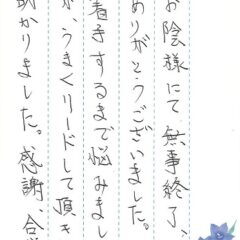 お陰様にて無事終了、
ありがとうございました。
着するまで悩みまし
が、うまくリードして頂き
助かりました。感謝 合掌